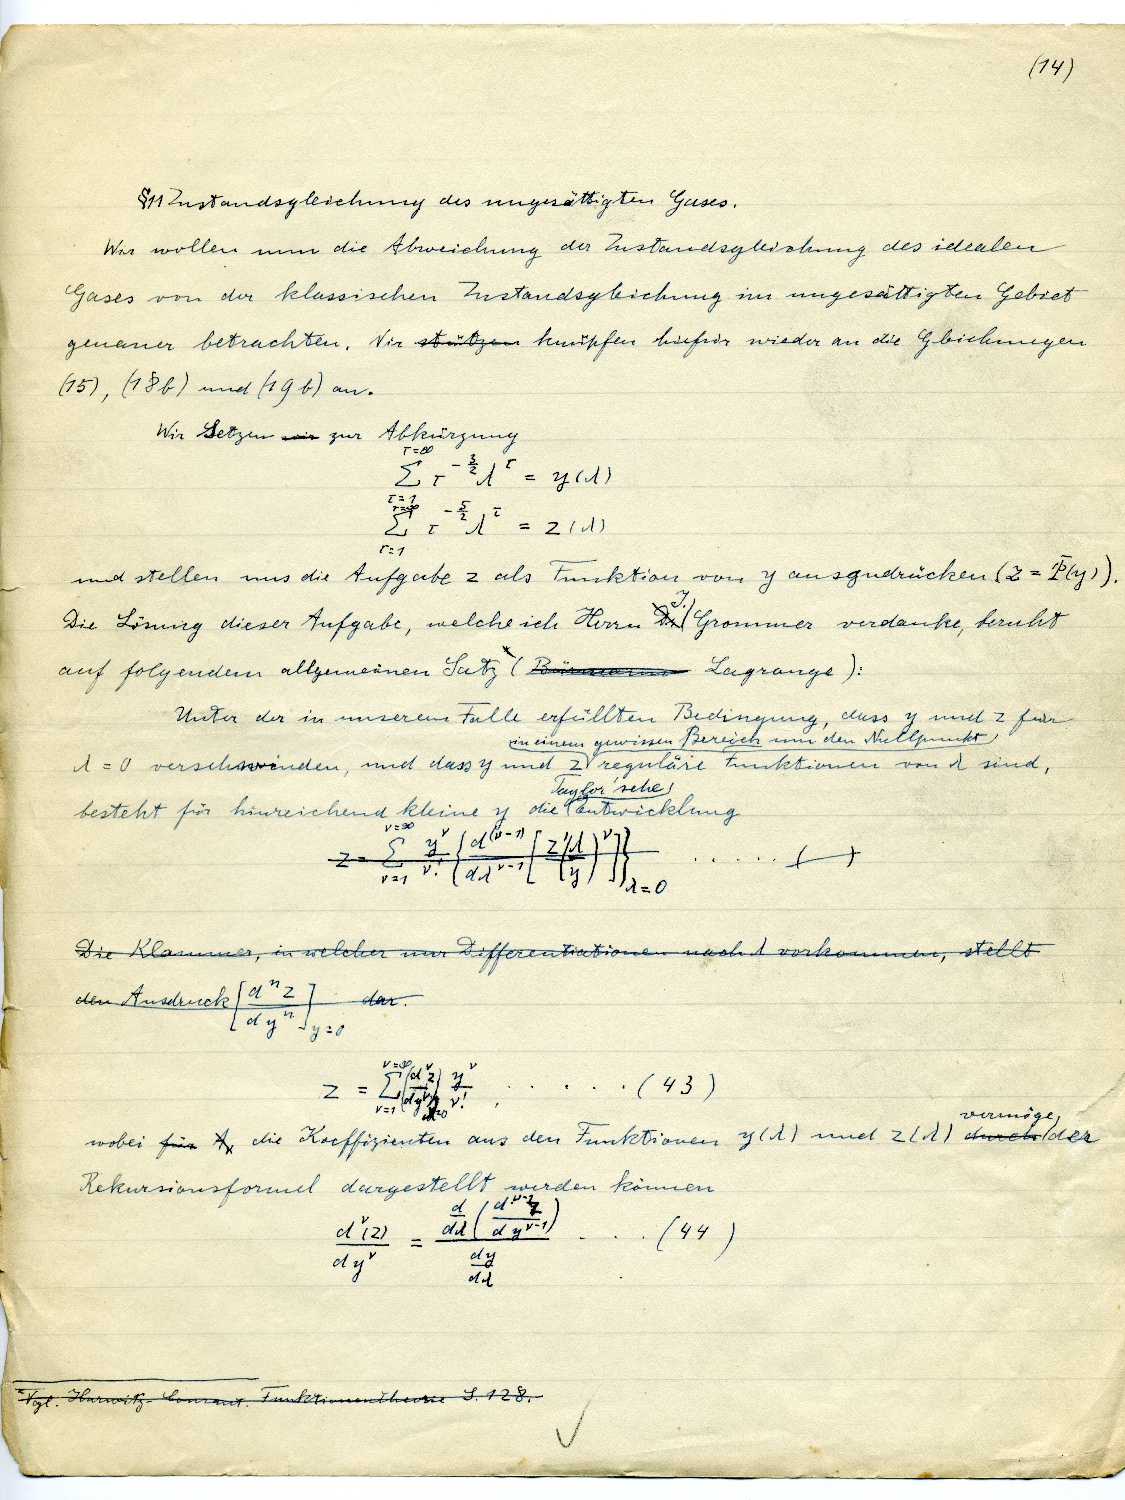 (14)
§11 Zustandsgleichung des ungesättigten Gases.
Wir wollen nun die Abweichung der Zustandsgleichung des idealen
Gases von der klassischen Zustandsgleichung im ungesättigten Gebiet
genauer betrachten. Wir stützen knüpfen hiefür wieder an die Gleichungen
(15), (18b) und (19b) an.
Wir Setzen wir zur Abkürzung
τ=∞ ∑ τ=1 τ^{-3/2} λ^τ = y(λ)
τ=∞ ∑ τ=1 τ^{-5/2} λ^τ = z(λ)
und stellen uns die Aufgabe z als Funktion von y auszudrücken (z = Φ(y)).
J.
Die Lösung dieser Aufgabe, welche ich Herrn Dr. Grommer verdanke, beruht
auf folgendem allgemeinen Satz* (Bürmann Lagrange):
Unter der in unserem Falle erfüllten Bedingung, dass y und z für
in einem gewissen Bereich um den Nullpunkt
λ = 0 verschwinden, und dass y und z reguläre Funktionen von λ sind,
Taylor'sche
besteht für hinreichend kleine y die Entwicklung
z = ν=∞ ∑ ν=1 y^ν/ν! {d^{(ν-1)}/dλ^{ν-1} [z' (λ/y)^ν]}_{λ=0} . . . . . ( )
Die Klammer, in welcher nur Differentiationen nach λ vorkommen, stellt
den Ausdruck [d^n z/dy^n]_{y=0} dar.
z = ν=∞ ∑ ν=1 (d^ν z/dy^ν)_{λ=0} y^ν/ν! . . . . . . (43)
vermöge
wobei für die Koeffizienten aus den Funktionen y(λ) und z(λ) durch der
Rekursionsformel dargestellt werden können
d^ν(z)/dy^ν = d/dλ (d^{ν-1}z/dy^{ν-1}) / (dy/dλ) . . . (44)
*Vgl. Hurwitz-Courant. Funktionentheorie S. 128.